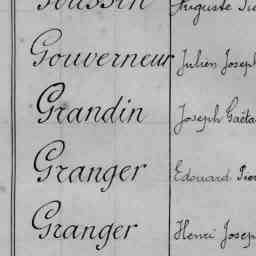 Gouverneur Julien Joseph
Grandin Joseph Gaëta
Granger Edouard
Granger Henri Josep